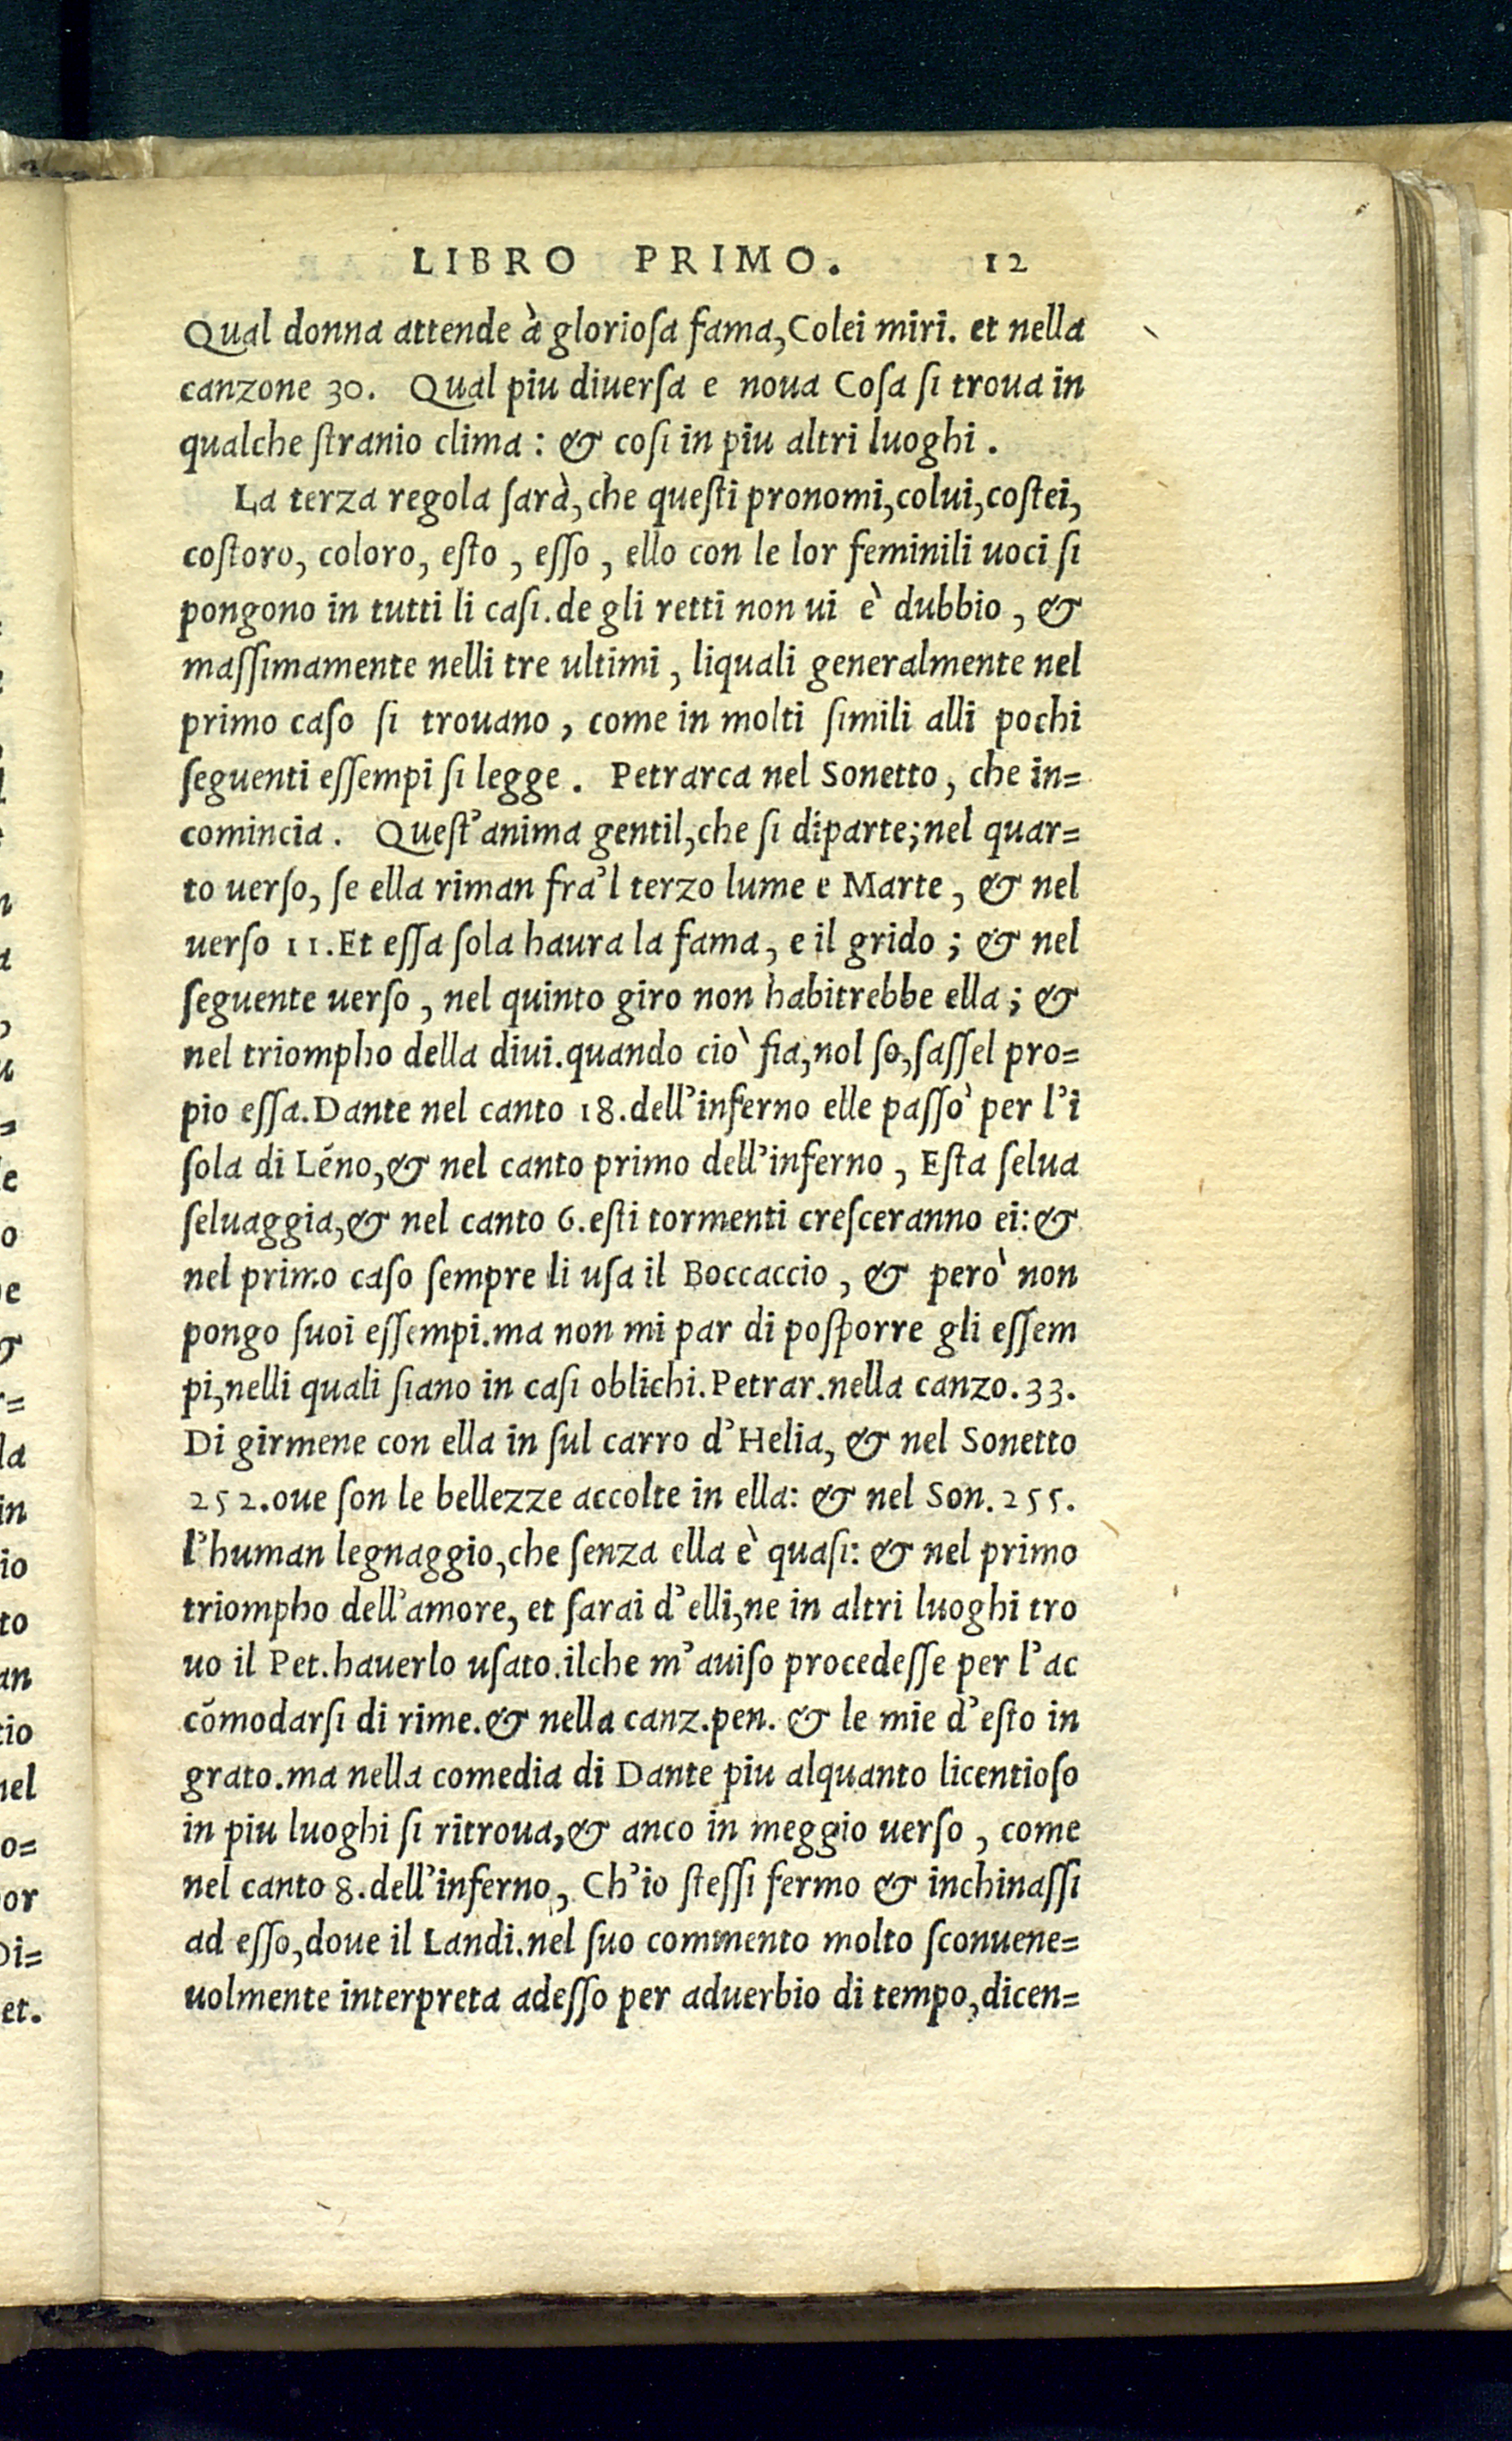 LIBRO PRIMO. 12
Qual donna attende à gloriosa fama, Colei miri. et nella
canzone 30. Qual piu diuersa e noua Cosa si troua in
qualche stranio clima: & cosi in piu altri luoghi.
La terza regola sarà, che questi pronomi, colui, costei,
costoro, coloro, esto, esso, ello con le lor feminili uoci si
pongono in tutti li casi. de gli retti non ui è dubbio, &
massimamente nelli tre ultimi, liquali generalmente nel
primo caso si trouano, come in molti simili alli pochi
seguenti essempi si legge. Petrarca nel Sonetto, che in=
comincia. Quest'anima gentil, che si diparte; nel quar=
to uerso, se ella riman fra'l terzo lume e Marte, & nel
uerso 11. Et essa sola haura la fama, e il grido; & nel
seguente uerso, nel quinto giro non habitrebbe ella; &
nel triompho della diui. quando ciò fia, nol so, sassel pro=
pio essa. Dante nel canto 18. dell'inferno elle passò per l'i
sola di Léno, & nel canto primo dell'inferno, Esta selua
seluaggia, & nel canto 6. esti tormenti cresceranno ei: &
nel primo caso sempre li usa il Boccaccio, & però non
pongo suoi essempi. ma non mi par di posporre gli essem
pi, nelli quali siano in casi oblichi. Petrar. nella canzo. 33.
Di girmene con ella in sul carro d'Helia, & nel Sonetto
252. oue son le bellezze accolte in ella: & nel Son. 255.
l'human legnaggio, che senza ella è quasi: & nel primo
triompho dell'amore, et sarai d'elli, ne in altri luoghi tro
uo il Pet. hauerlo usato. ilche m'auiso procedesse per l'ac
cōmodarsi di rime. & nella canz. pen. & le mie d'esto in
grato. ma nella comedia di Dante piu alquanto licentioso
in piu luoghi si ritroua, & anco in meggio uerso, come
nel canto 8. dell'inferno, Ch'io stessi fermo & inchinassi
ad esso, doue il Landi. nel suo commento molto sconuene=
uolmente interpreta adesso per aduerbio di tempo, dicen=